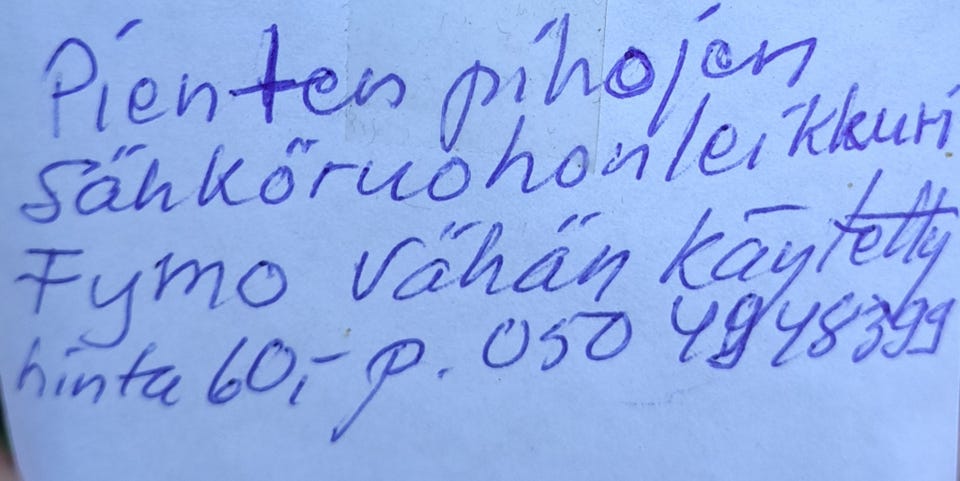 Pienten pihojen
Sähköruohonleikkuri
Fymo vähän käytetty
hinta 60,- p. 050 4948399